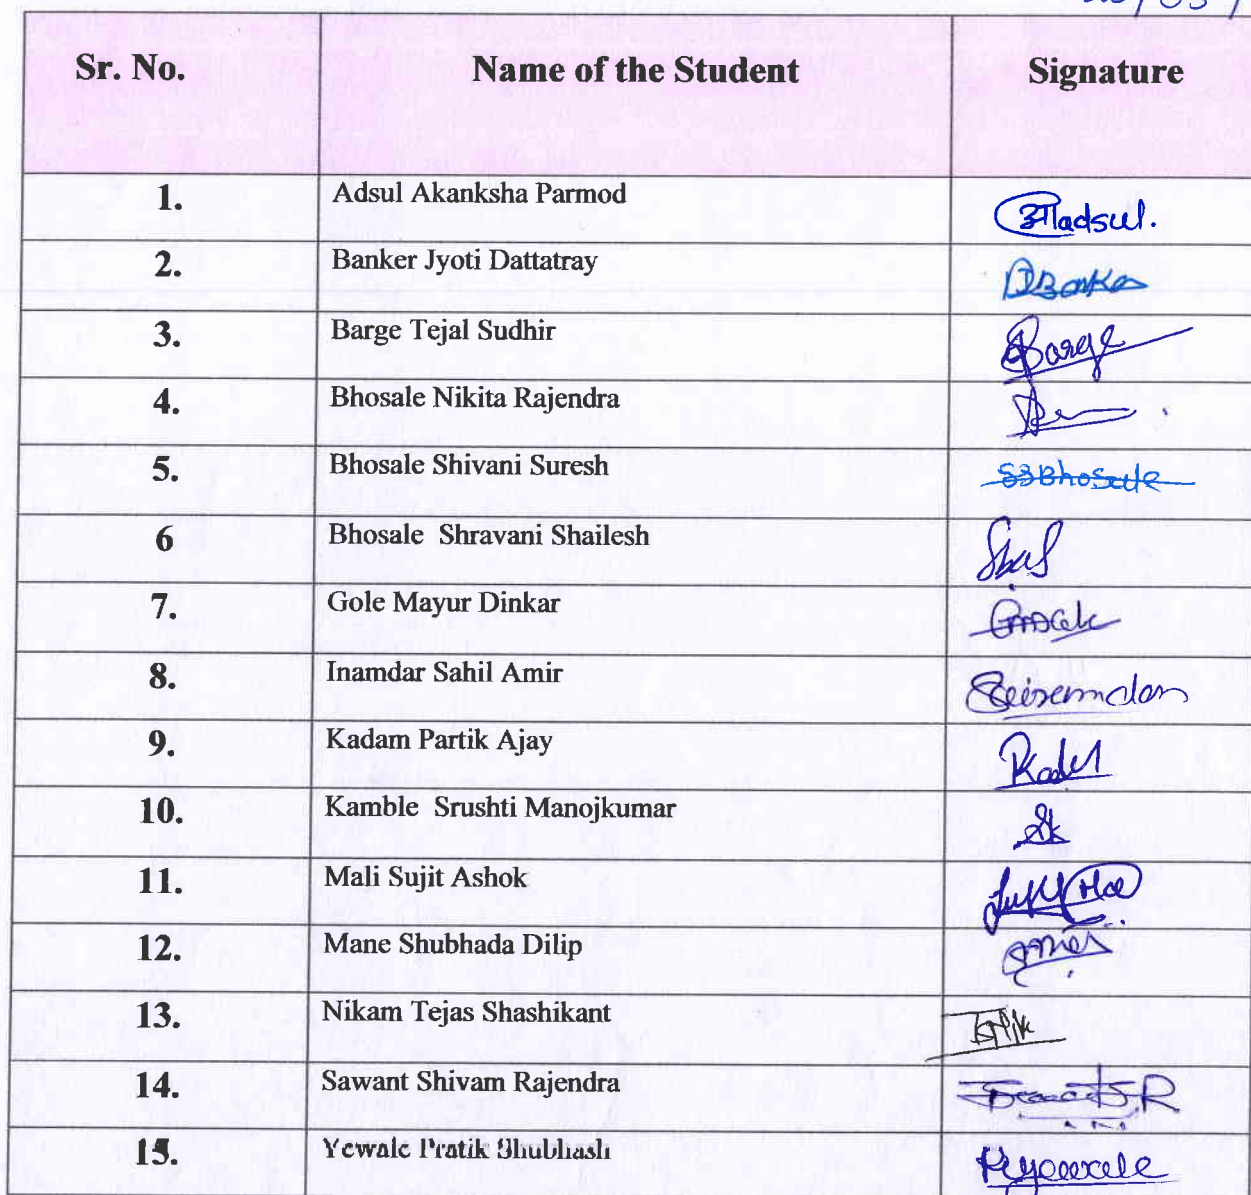 Sr. No. Name of the Student Signature
1. Adsul Akanksha Parmod आadsul.
2. Banker Jyoti Dattatray
3. Barge Tejal Sudhir Barge
4. Bhosale Nikita Rajendra
5. Bhosale Shivani Suresh SSBhosale
6 Bhosale Shravani Shailesh
7. Gole Mayur Dinkar
8. Inamdar Sahil Amir
9. Kadam Partik Ajay
10. Kamble Srushti Manojkumar Sk
11. Mali Sujit Ashok
12. Mane Shubhada Dilip
13. Nikam Tejas Shashikant
14. Sawant Shivam Rajendra
15. Yewale Pratik Shubhash